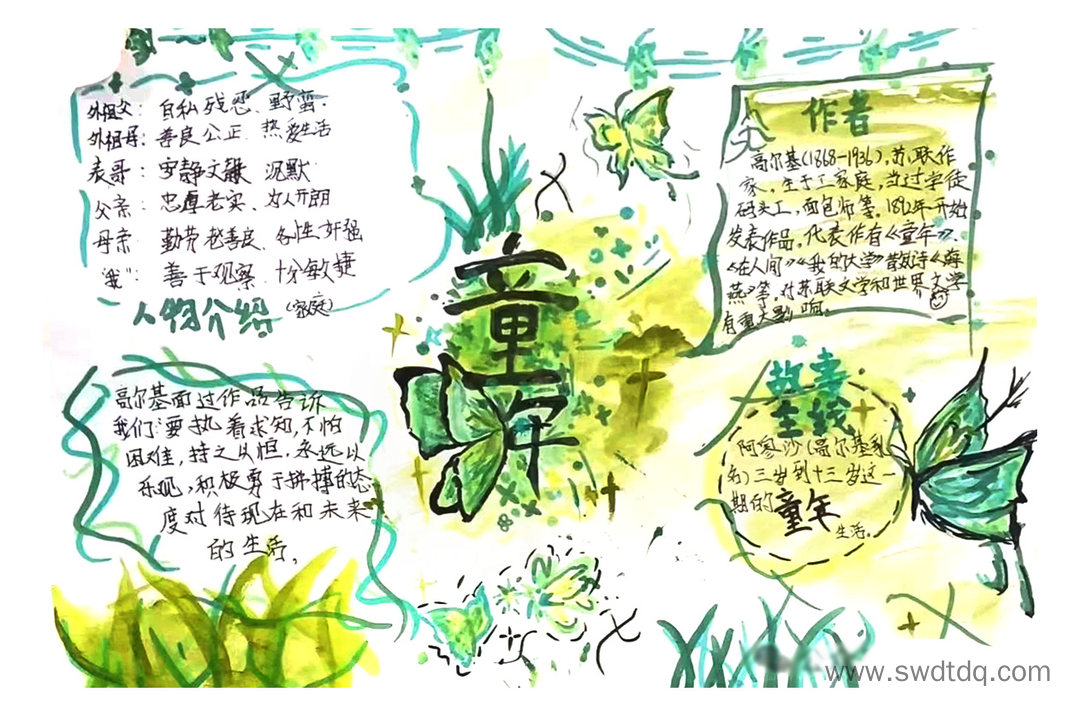 外祖父：自私残忍、野蛮.
外祖母：善良公正、热爱生活
表哥：宁静文雅 沉默
父亲：忠厚老实、为人开朗
母亲：勤劳 善良、 性 强
"我"：善于观察、十分敏捷
人物介绍 (家庭)
童年
作者
高尔基(1868-1936),苏联作
家，生于工家庭，当过学徒
码头工，面包师等，1892年开始
发表作品，代表作有《童年》、
《在人间》《我的大学》散文诗《海
燕》等，对苏联文学和世界文学
有重大影响.
高尔基面过作品告诉
我们要执着求知，不怕
困难，持之以恒，永远以
乐观，积极勇于拼搏的态
度对待现在和未来
的生活。
故事
主线
阿廖沙(高尔基乳
名)三岁到十三岁这一
期的童年生活。
www.swdtdq.com